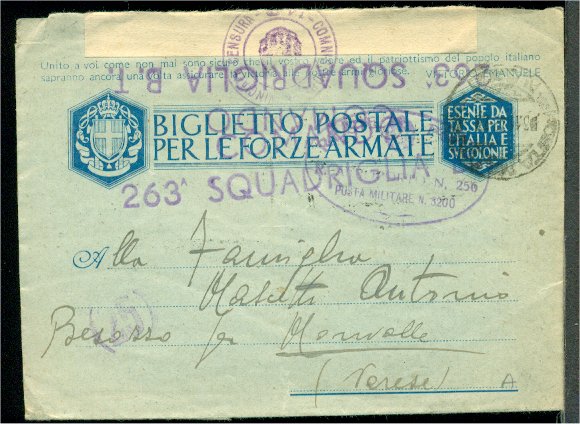 Unito a voi come non mai sono sicuro che il vostro valore ed il patriottismo del popolo italiano
sapranno ancora una volta assicurare la vittoria alle nostre armi gloriose. VITTORIO EMANUELE
CENSURA
263ª SQUADRIGLIA B.T
BIGLIETTO POSTALE
PER LE FORZE ARMATE
ESENTE DA
TASSA PER
L'ITALIA E
SVE COLONIE
263ª SQUADRIGLIA
N. 256
POSTA MILITARE N. 3200
Alla Famiglia
Masetti Antonio
Besozzo per Monvalle
(Varese)
A